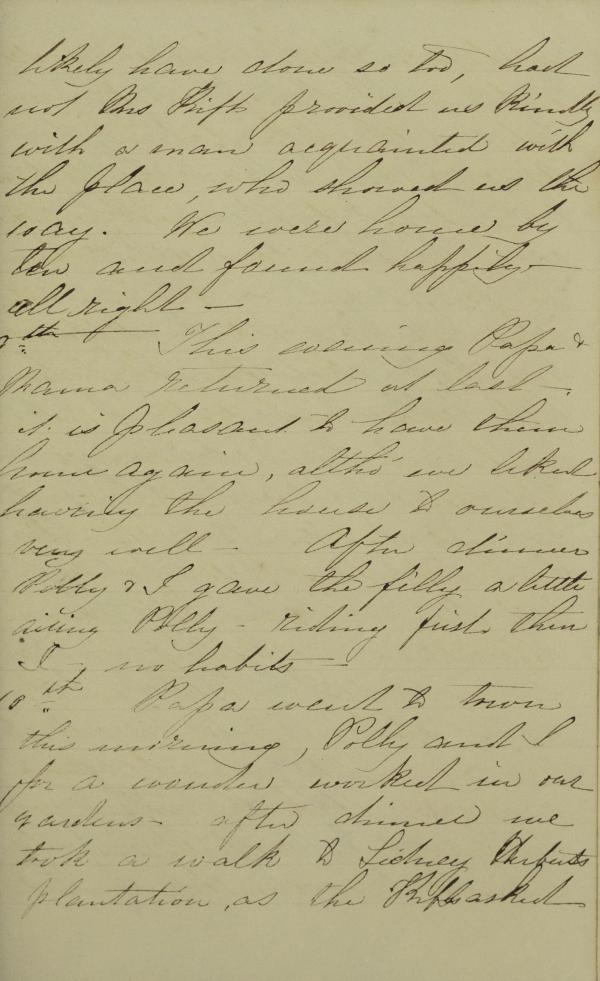 likely have done so too, had
not Mrs Kift provided us kindly
with a man acquainted with
the place, who showed us the
way. We were home by
ten and found happily
all right —
th This evening Papa &
Mama returned at last —
it is pleasant to have them
home again, altho' we liked
having the house to ourselves
very well — After dinner
Polly & I gave the filly a little
airing Polly - riding first then
I - no habits —
10th Papa went to town
this morning, Polly and I
for a wonder worked in our
gardens - after dinner we
took a walk to Sidney Herberts
plantation, as the Kifts asked